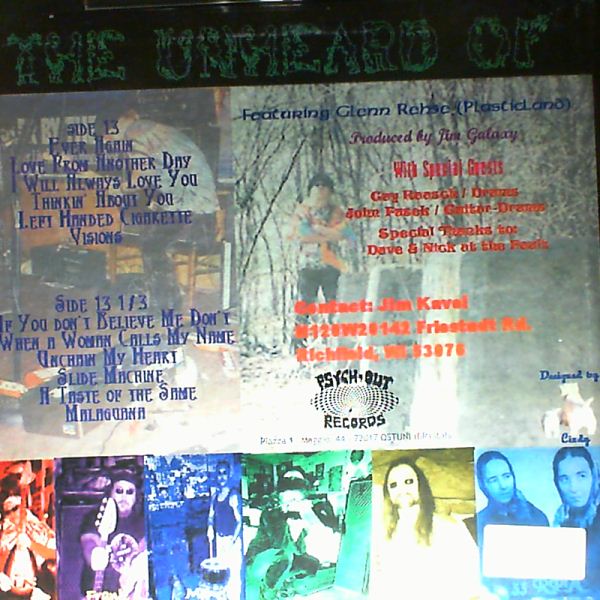 THE UNHEARD OF
SIDE 13
EVER AGAIN
LOVE FROM ANOTHER DAY
I WILL ALWAYS LOVE YOU
THINKIN' ABOUT YOU
LEFT HANDED CIGARETTE
VISIONS
SIDE 13 1/3
IF YOU DON'T BELIEVE ME DON'T
WHEN A WOMAN CALLS MY NAME
UNCHAIN MY HEART
SLIDE MACHINE
A TASTE OF THE SAME
MALAGUANA
Featuring Glenn Rehse (Plasticland)
Produced by Jim Galaxy
With Special Guests
/ Drums
John / Guitar-Drums
Special Thanks to:
Dave & Nick at the
Contact: Jim
N120W20142 Friestadt Rd.
Richfield, WI 53076
PSYCH-OUT
RECORDS
Piazza 1 Maggio, 44 - 72017 OSTUNI
Designed by
Cindy
Frank